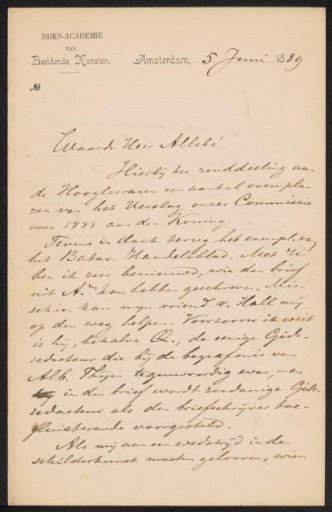 RIJKS-ACADEMIE
VAN
Beeldende Kunsten.
Amsterdam, 5 Juni 1889
№
Waarde Heer Allebé!
Hierbij ter ronddeeling aan
de Hoogleeraren een aantal exempla-
ren van het Verslag onzer Commissie
over 1888 aan den Koning.
Tevens in dank terug het exempl. v.
het Batav. Handelsblad. Met U
ben ik zeer benieuwd, wie den brief
uit A. kan hebben geschreven. Mis-
schien kan mijn vriend v. Hall mij
op den weg helpen. Voorzoover ik weet
is hij, behalve , de eenige Gids-
redacteur die bij de begrafenis van
Alb. Thijm tegenwoordig was — en
in den brief wordt zoodanige Gids-
redacteur als den briefschrijver toe-
fluisterende voorgesteld.
Als wij aan een wedstrijd in de
schilderkunst moeten gelooven, wien